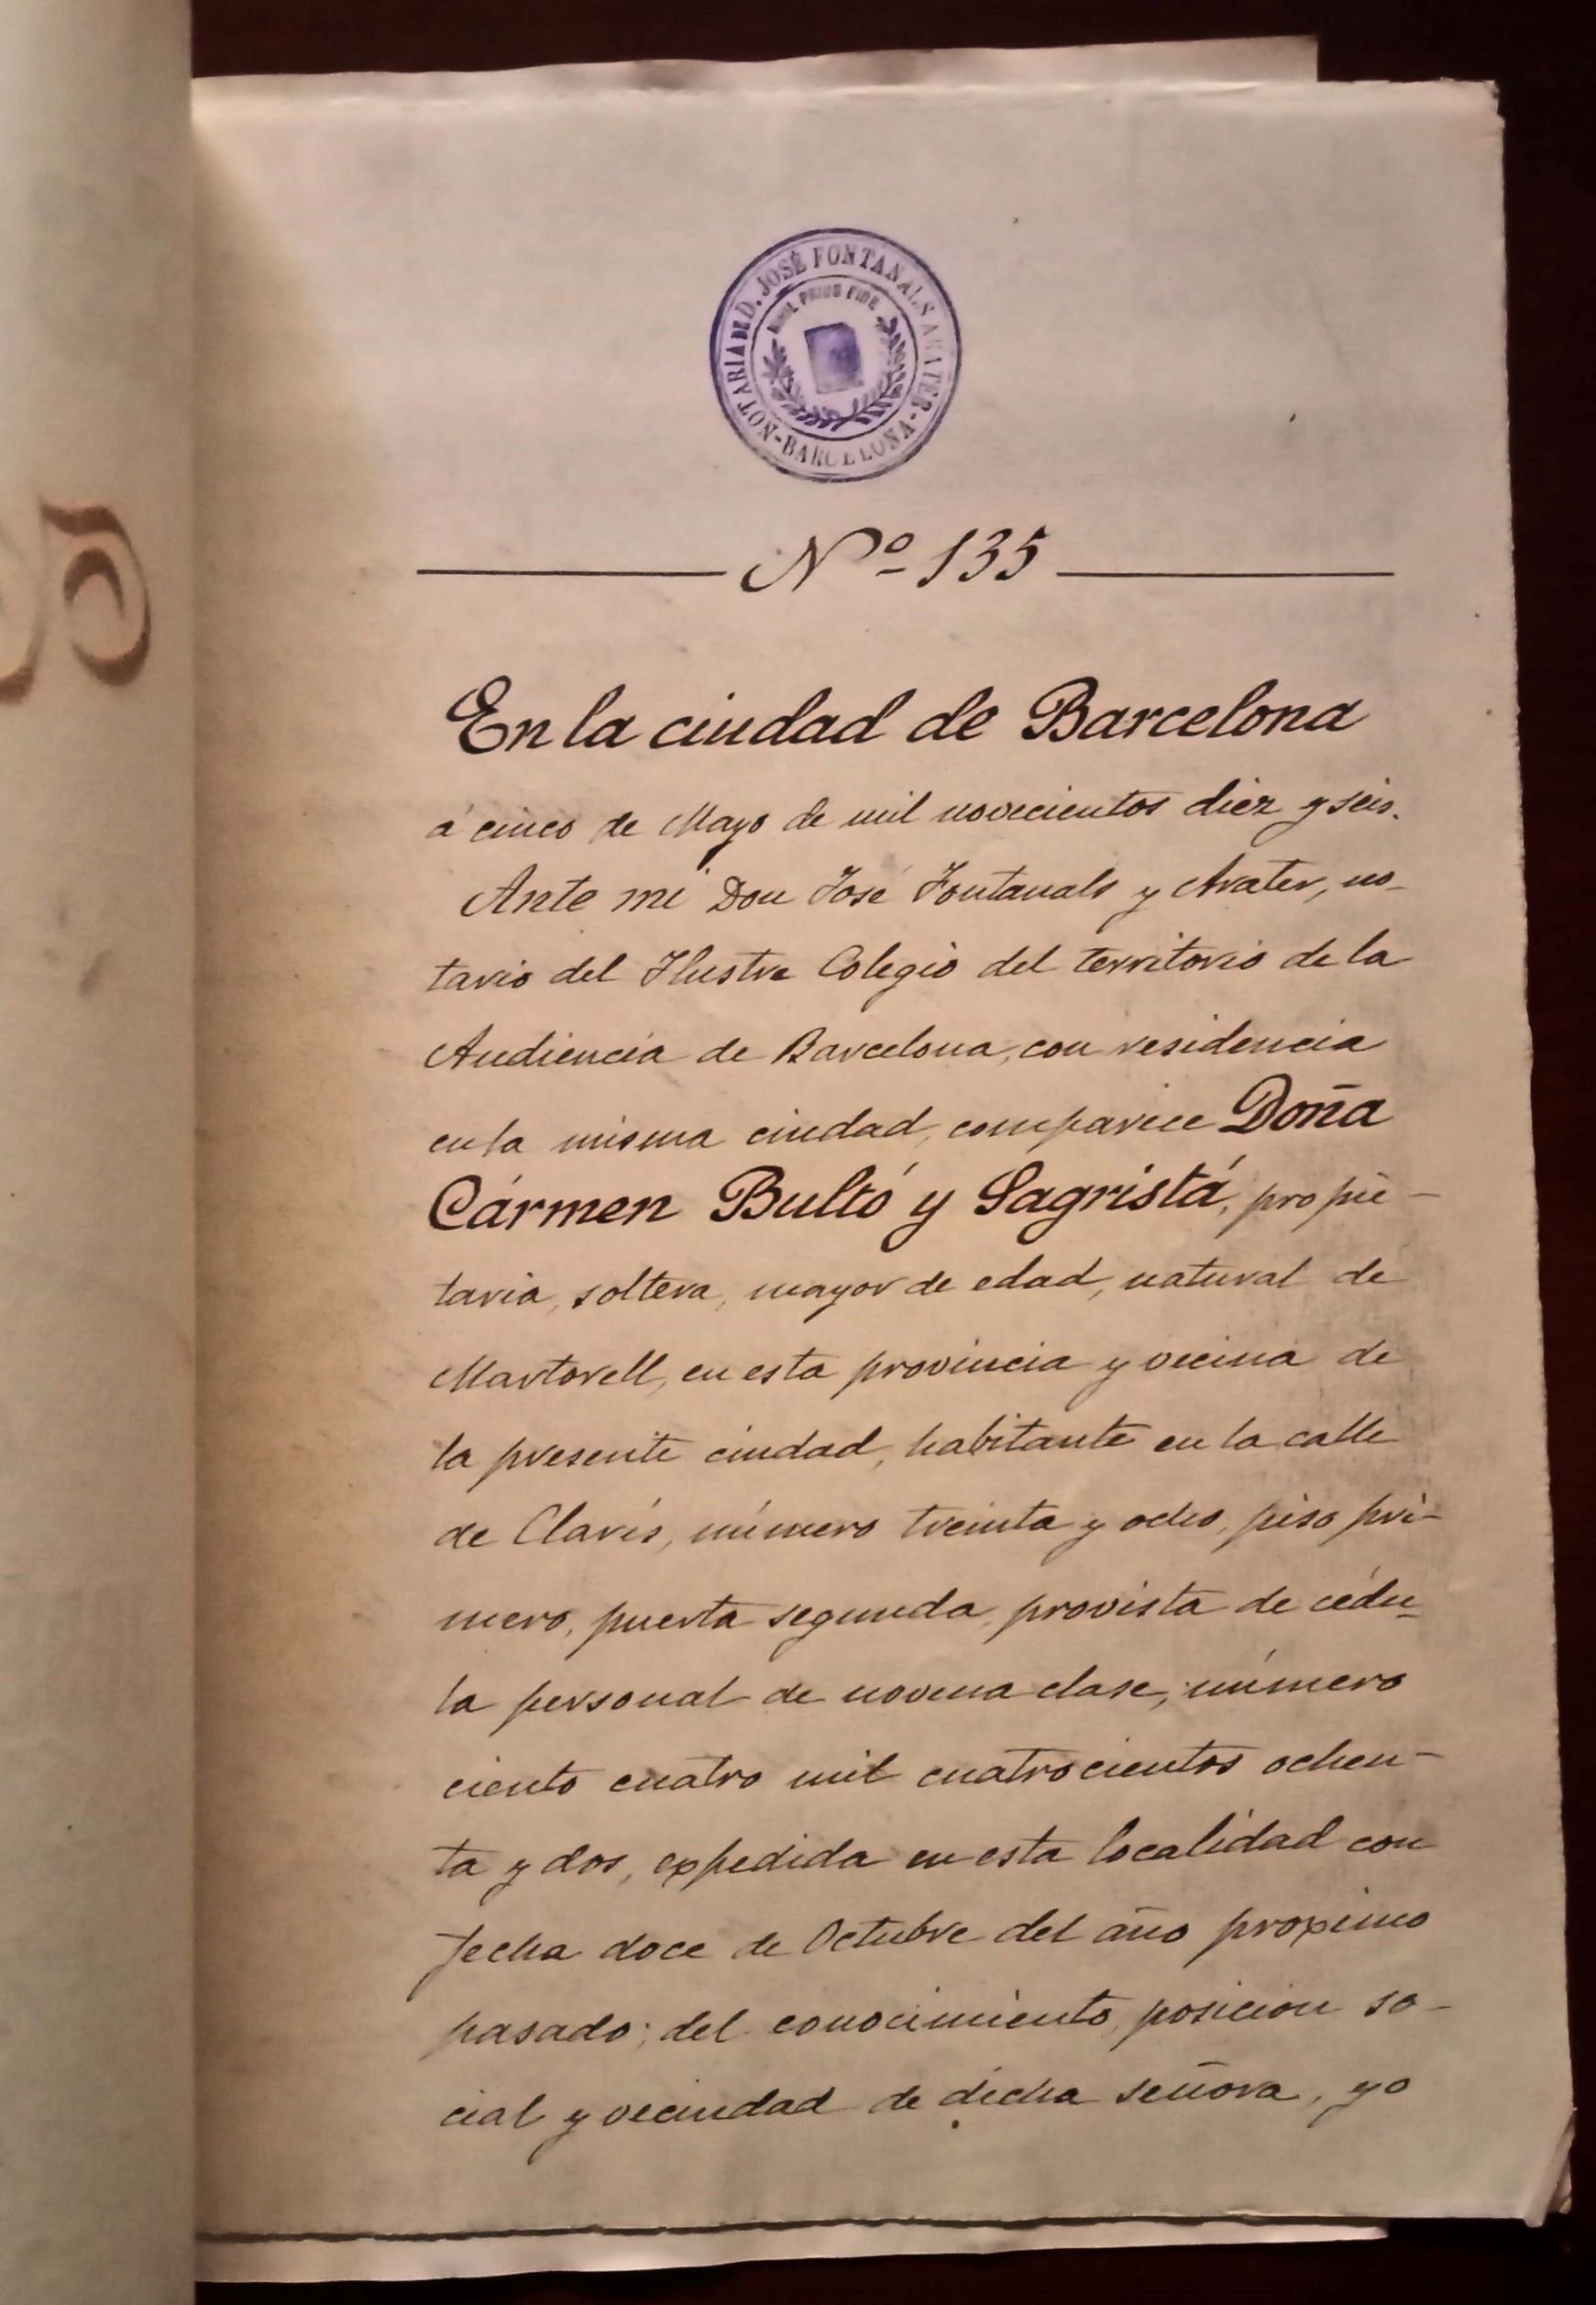 NOTARIA DE D. JOSÉ FONTANALS ARATER - BARCELONA -
NIHIL PRIUS FIDE
Nº 135
En la ciudad de Barcelona
á cinco de Mayo de mil novecientos diez y seis.
Ante mi Don José Fontanals y Arater, no-
tario del Ilustre Colegio del territorio de la
Audiencia de Barcelona, con residencia
en la misma ciudad, comparece Doña
Cármen Bultó y Sagristá, propie-
taria, soltera, mayor de edad, natural de
Martorell, en esta provincia y vecina de
la presente ciudad, habitante en la calle
de Claris, número treinta y ocho, piso pri-
mero, puerta segunda, provista de cédu-
la personal de novena clase, número
ciento cuatro mil cuatrocientos ochen-
ta y dos, expedida en esta localidad con
fecha doce de Octubre del año proximo
pasado; del conocimiento, posicion so-
cial y vecindad de dicha señora, yo